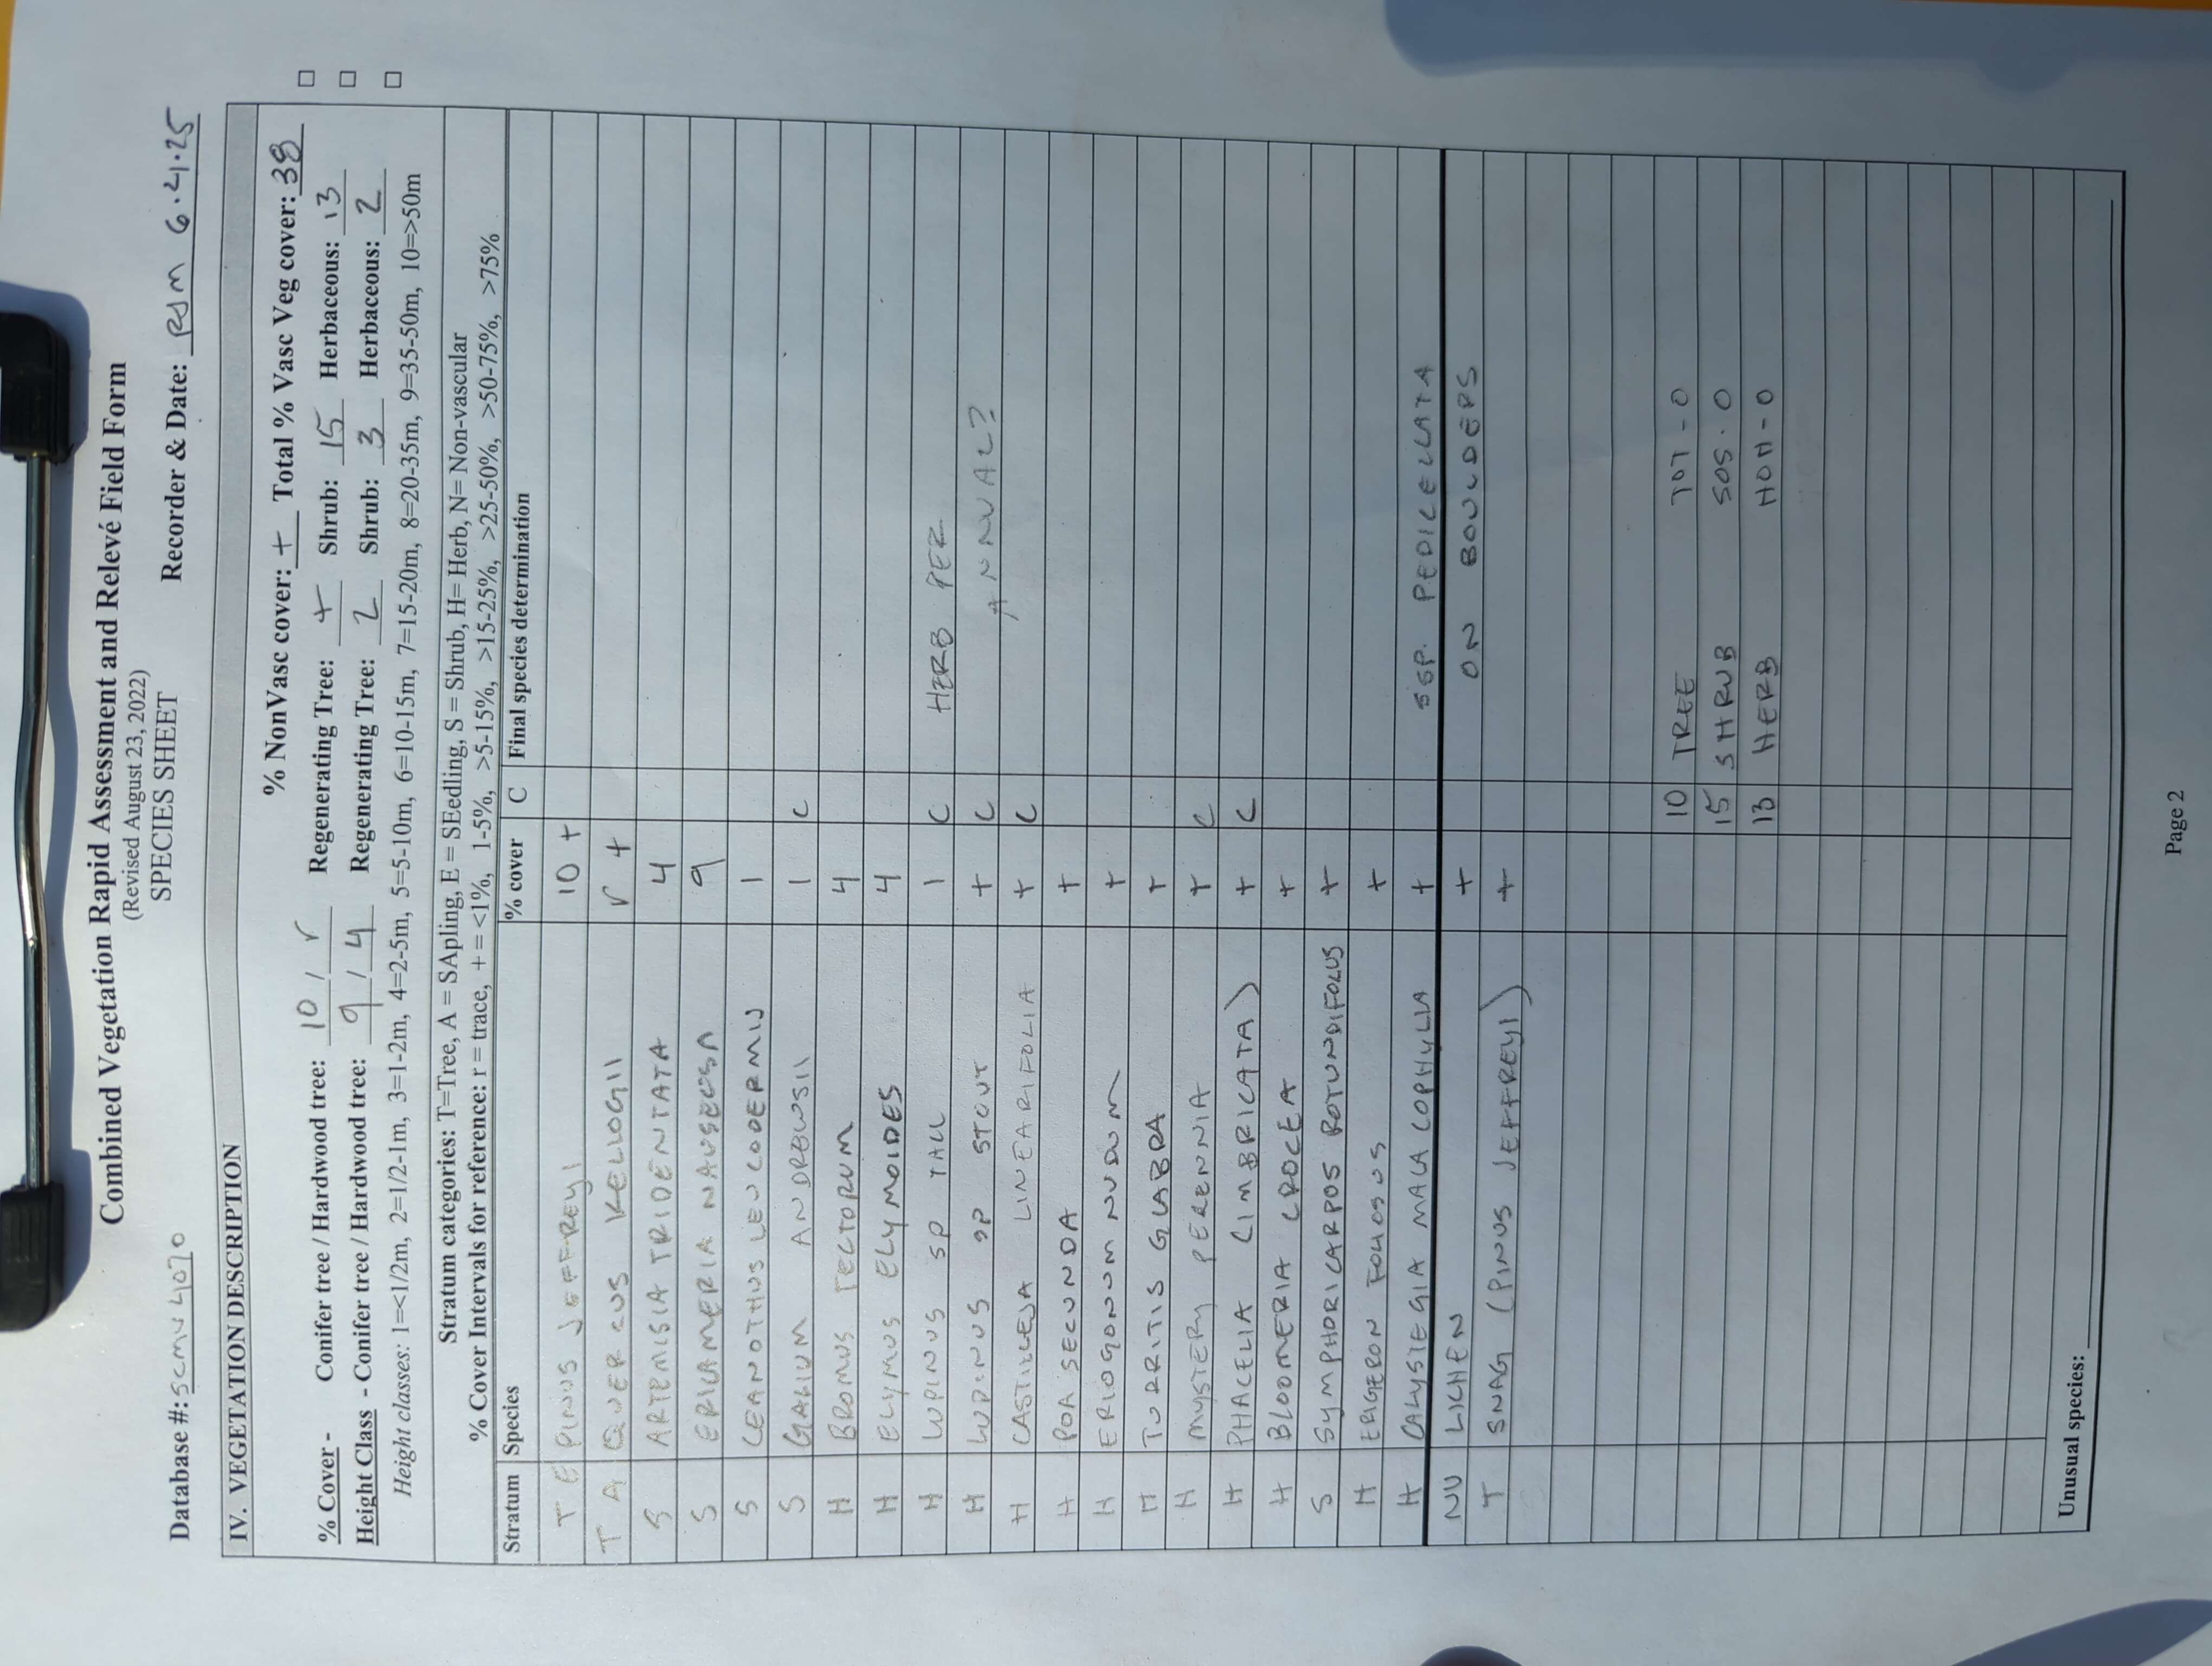 Combined Vegetation Rapid Assessment and Relevé Field Form
(Revised August 23, 2022)
SPECIES SHEET
Database #: SCMV4070 Recorder & Date: RJM 6.4.25
IV. VEGETATION DESCRIPTION
% NonVasc cover: + Total % Vasc Veg cover: 38
% Cover - Conifer tree / Hardwood tree: 10 / r Regenerating Tree: + Shrub: 15 Herbaceous: 13
Height Class - Conifer tree / Hardwood tree: 9 / 4 Regenerating Tree: 2 Shrub: 3 Herbaceous: 2
Height classes: 1=<1/2m, 2=1/2-1m, 3=1-2m, 4=2-5m, 5=5-10m, 6=10-15m, 7=15-20m, 8=20-35m, 9=35-50m, 10=>50m
Stratum categories: T=Tree, A = SApling, E = SEedling, S = Shrub, H= Herb, N= Non-vascular
% Cover Intervals for reference: r = trace, + = <1%, 1-5%, >5-15%, >15-25%, >25-50%, >50-75%, >75%
Stratum Species % cover C Final species determination
T E PINUS JEFFREYI 10 +
T A QUERCUS KELLOGII r +
S ARTEMISIA TRIDENTATA 4
S ERICAMERIA NAUSEOSA 9
S CEANOTHUS LEUCODERMIS 1
S GALIUM ANDREWSII 1 C
H BROMUS TECTORUM 4
H ELYMUS ELYMOIDES 4
H LUPINUS SP TALL 1 C HERB PER
H LUPINUS SP STOUT + C ANNUAL?
H CASTILLEJA LINEARIFOLIA + C
H POA SECUNDA +
H ERIOGONUM NUDUM +
H TURRITIS GLABRA +
H MYSTERY PERENNIA + C
H PHACELIA (IMBRICATA) + C
H BLOOMERIA CROCEA +
S SYMPHORICARPOS ROTUNDIFOLUS +
H ERIGERON FOLIOSUS +
H CALYSTEGIA MALACOPHYLIA + SSP. PEDICELLATA
NV LICHEN + ON BOULDERS
T SNAG (PINUS JEFFREYI) +
10 TREE TOT - 0
15 SHRUB SOS - 0
13 HERB HOH - 0
Unusual species:
Page 2